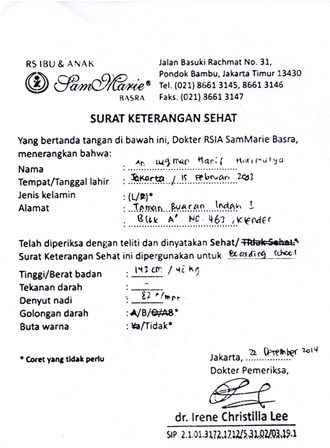 RS IBU & ANAK
SamMarie®
BASRA
Jalan Basuki Rachmat No. 31,
Pondok Bambu, Jakarta Timur 13430
Tel. (021) 8661 3145, 8661 3146
Faks. (021) 8661 3147
SURAT KETERANGAN SEHAT
Yang bertanda tangan di bawah ini, Dokter RSIA SamMarie Basra,
menerangkan bahwa:
Nama : An Luqman Hanif
Tempat/Tanggal lahir : Jakarta / 15 Februari 2003
Jenis kelamin : (L/P)*
Alamat : Taman Buaran Indah I
Blok A NO. 463, Klender
Telah diperiksa dengan teliti dan dinyatakan Sehat/ Tidak Sehat.*
Surat Keterangan Sehat ini dipergunakan untuk Boarding School
Tinggi/Berat badan : 143 cm / 42 kg
Tekanan darah : –
Denyut nadi : 82 x/mnt
Golongan darah : A/B/O/AB*
Buta warna : Ya/Tidak*
* Coret yang tidak perlu
Jakarta, 22 Desember 2014
Dokter Pemeriksa,
dr. Irene Christilia Lee
SIP: 2.1.01.3172.1712/5.31.02/03.19.1